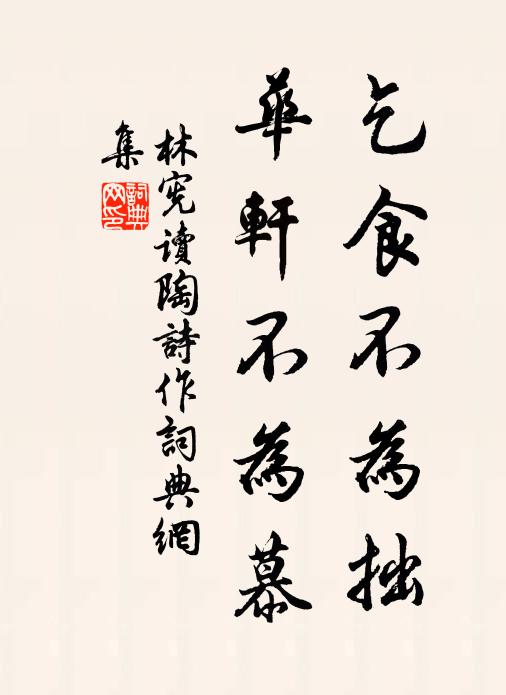 乞食不為拙
華軒不為慕
林宪讀陶詩作詞典網
集
詞典
网印